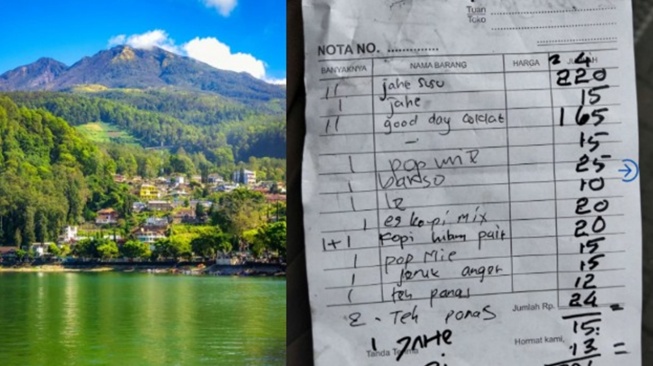 Tuan
Toko
NOTA NO. ..............
BANYAKNYA NAMA BARANG HARGA JUMLAH
11 jahe susu 220
1 jahe 15
11 good day coklat 165
15
1 pop mie 25
1 bakso 10
1 20
1 es kopi mix 20
1+1 kopi hitam pait 15
1 pop mie 15
1 jeruk anget 12
1 teh panas 24
Jumlah Rp.
2 - Teh panas 15
1 JAHE 13
Tanda Terima
Hormat kami,